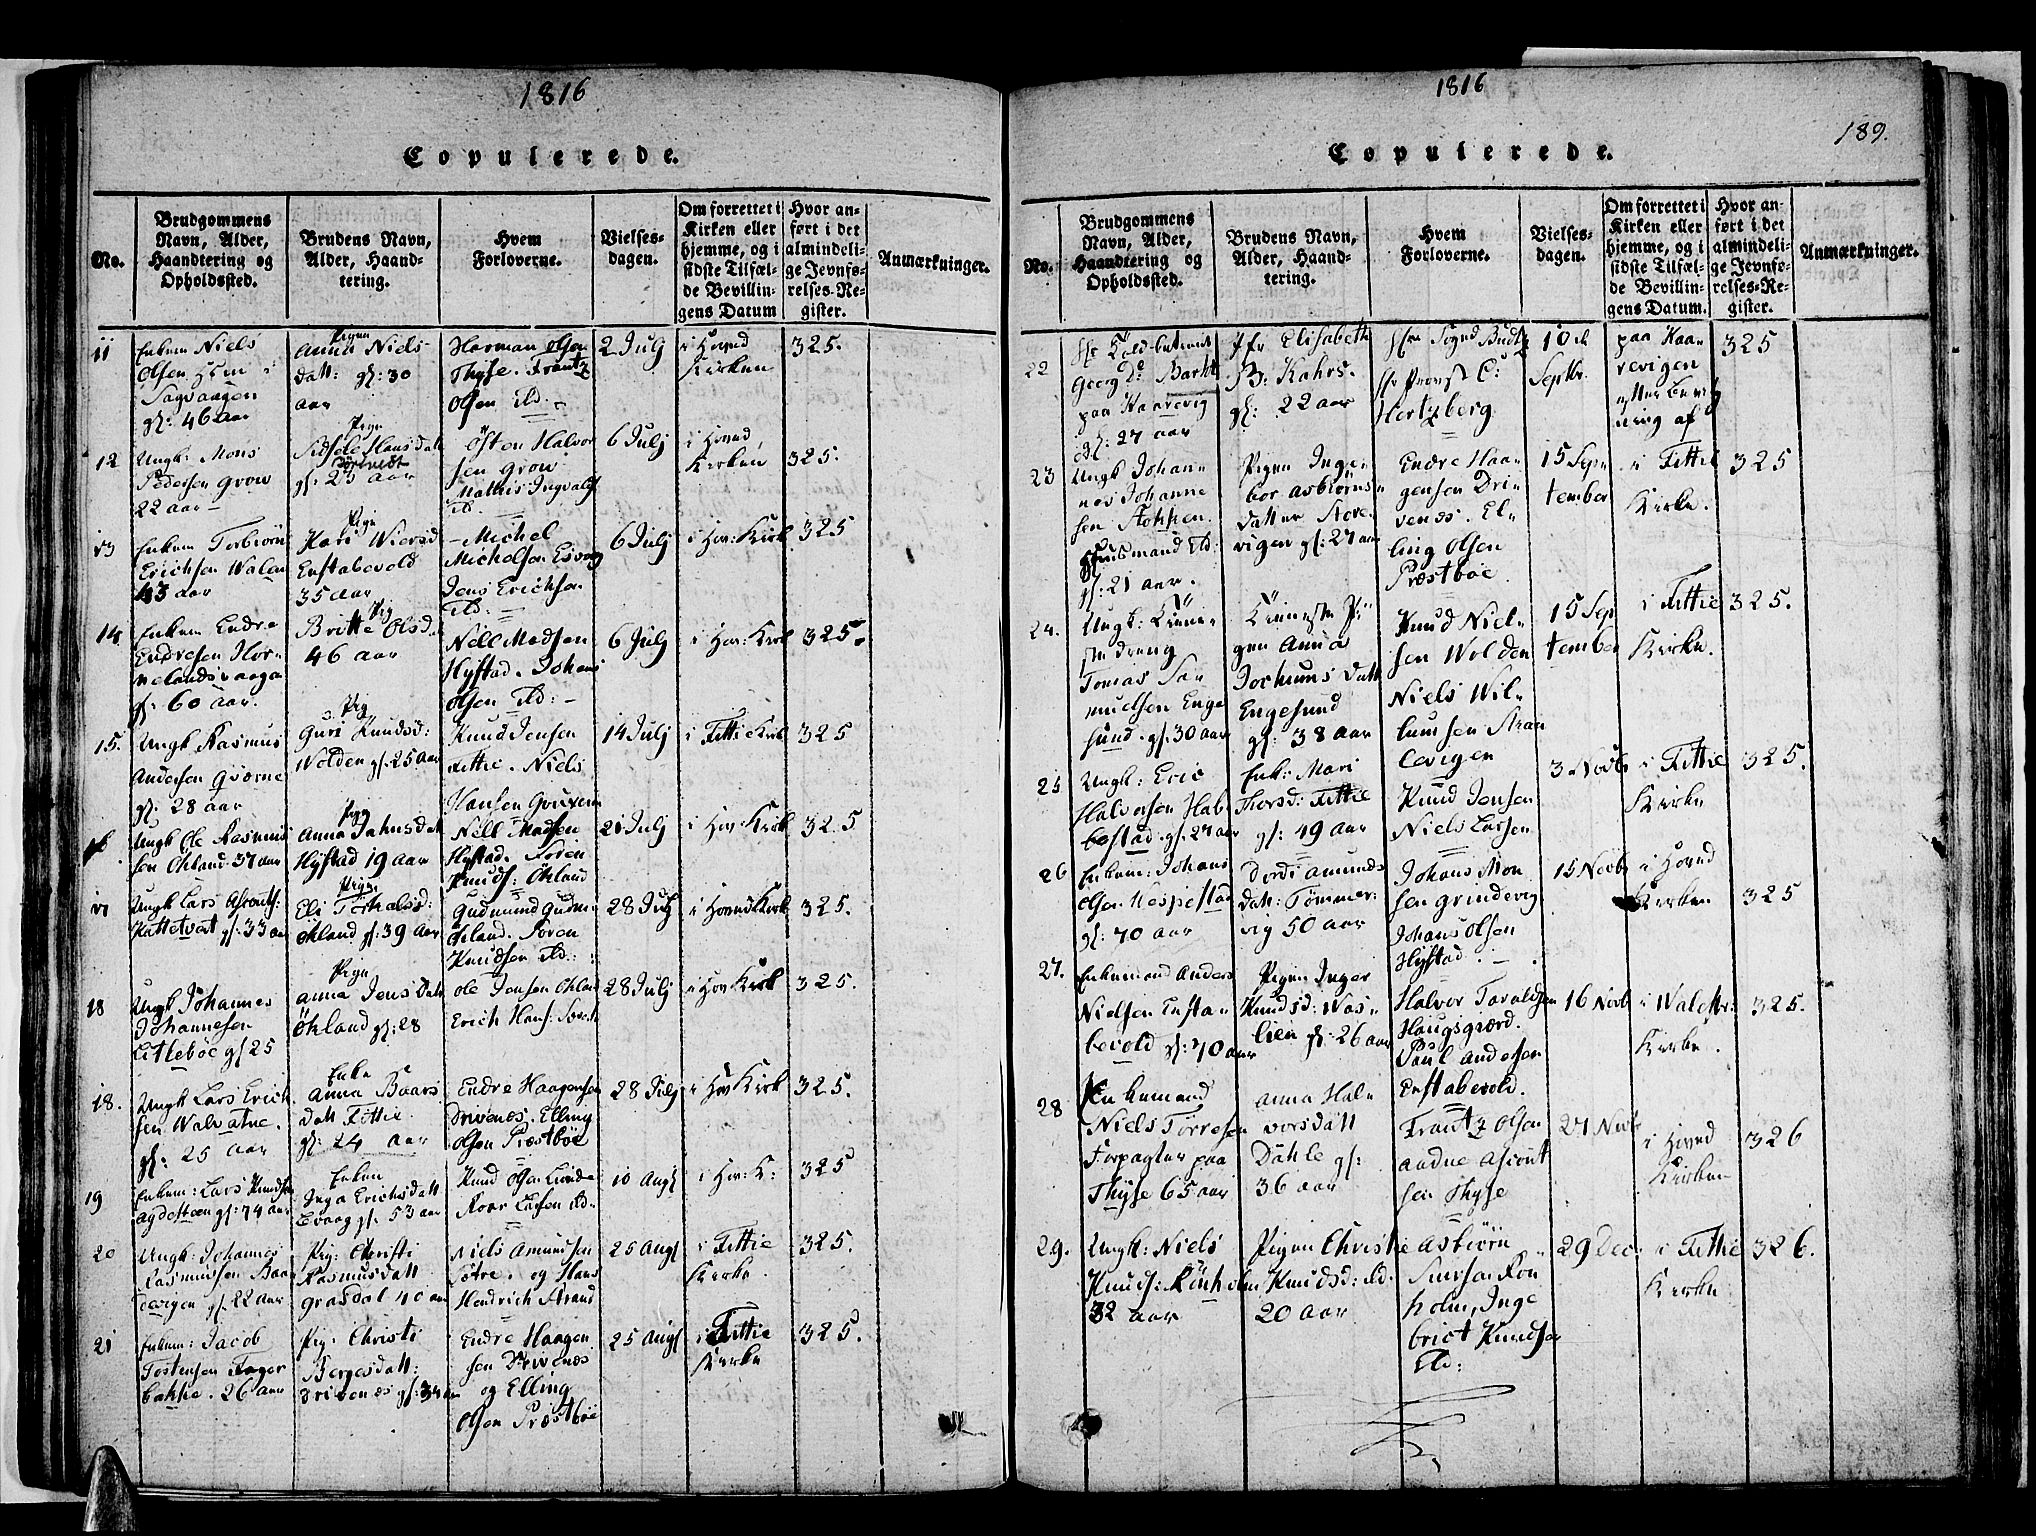 1816
Copulerede.
No.
Brudgommens
Navn, Alder,
Haandtering og
Opholdssted.
Brudens Navn,
Alder, Haand-
tering.
Hvem
Forloverne.
Vielses-
dagen.
Om forrettet i
Kirken eller
hjemme, og i
sidste Tilfæl-
de Bevillin-
gens Datum
Hvor an-
ført i det
almindeli-
ge Jevnfø-
relses-Re-
gister.
Anmærkninger.
11
Enkem Niels
Olsen
Sagvaagen
gl: 46 aar
Pigen
Anna Niels
datt: gl: 30
aar
Harman Olsen
Thyse. Frantz
Olsen ibd:
2 Julj
i Hoved
Kirken
325.
12
Ungk: Mons
Pedersen Grow
22 aar
Pign
Hans datt
gl: 23 aar
Østen Halvor
sen Grow
Mathis Ingvalds
6 Julj
i Hoved
Kirken
325.
13
Enkem Torbiørn
Erichsen Walen
43 aar
Pign
Kari Niersd
Enstabevold
35 aar
Michel
Michelsen
Jens Erichsen
ibd:
6 Julj
i Hov: Kirk
325
14
Enkem Endre
Endresen Hor-
nelandsvaage
gl: 60 aar.
Pig
Britte Olsd.
46 aar
Nell Madsen
Hystad. Johans
Olsen ibd:
6 Julj
i Hov: Kirk
325.
15.
Ungk Rasmus
Andersen Qværne
gl: 28 aar
Pig
Guri Knudsd:
Wolden gl: 25 aar
Knud Jensen
Fittie. Niels
Hansen
14 Julj
i Fittie Kirk
325
16
Ungk Ole Rasmus
sen Økland 37 aar
Pign
Anna Jahnsdat
Hystad 19 aar
Nell Madsen
Hystad. Søren
Knuds: Økland
21 Julj
i Hov: Kirk
325
17
Ungk Lars
Kattetvet gl: 33 aar
Pign
Eli
Økland gl: 39 aar
Gudmund Gudm:
Økland. Søren
Knudsen ibd:
28 Julj
i Hoved Kirk
325.
18
Ungk Johannes
Johannesen
Litlebøe gl 25
Pign
Anna Jens Datt
Økland gl: 28
Ole Jensen Økland
Erich Hans:
28 Julj
i Hov Kirk
325.
18.
Ungk Lars Erich
sen Walvatne.
gl: 25 aar
Enke
Anna Baars
datt Fittie
gl: 24 aar
Endre Haagensen
Drivenes. Elling
Olsen Præstbøe
28 Julj
i Hov Kirk
325.
19
Enkem: Lars Knudsen
Agdesteen gl: 74 aar
Enken
Inga Erichsdatt
gl: 53 aar
Knud Olsen Lunde
Roar Larsen ibd
10 Augs
i Hov: K:
325
20
Ungk: Johannes
Rasmussen
gl 22 aar
Pig: Christi
Rasmusdatt
Grasdal 40 aar
Niels Amundsen
Søtre. og Hans
Hendrich Strand
25 Augs
i Fittie
Kirke
325.
21
Enkem: Jacob
Tostensen
bakke. 26 aar
Pig: Christi
Bergesdatt:
Drivenes gl: 34 aar
Endre Haagen
sen Drivenes
og Elling
Olsen Præstbøe
25 Augs
i Fittie
Kirke
325.
1816
189.
Copulerede.
No.
Brudgommens
Navn, Alder,
Haandtering og
Opholdssted.
Brudens Navn,
Alder, Haand-
tering.
Hvem
Forloverne.
Vielses-
dagen.
Om forrettet i
Kirken eller
hjemme, og i
sidste Tilfæl-
de Bevillin-
gens Datum.
Hvor an-
ført i det
almindeli-
ge Jevnfø-
relses-Re-
gister.
Anmærkninger.
22
Hr Toldbetient
Georg D:
paa Kaarevig
gl: 27 aar
Jfr Elisabeth
B: Kahrs.
gl: 22 aar
Hr Provst C:
Hertzberg
10 de
Septbr.
paa Kaa-
revigen
af
325
23
Ungk Johan-
nes Johanne
sen
Huusmand ibd:
gl: 21 aar.
Pigen Inge-
bor Asbiørns-
datter
vigen gl: 27 aar
Endre Haa-
gensen Dri-
venes. El-
ling Olsen
Præstbøe
15 Sep-
tember
i Fittie
Kirke.
325
24.
Ungk:
dreng
Tomas Sa-
muelsen Enge
sund. gl: 30 aar
Pi-
gen Anna
Jochums datt
Engesund
gl: 38 aar
Knud Niel-
sen Wolden
Niels Wil-
lumsen Straa
levigen
15 Sep
tember
i Fittie
Kirke.
325.
25
Ungk: Eric
Halvorsen Hab-
bestad. gl: 27 aar
Enk: Mari
Thorsd: Fittie
gl: 49 aar
Knud Jensen
Niels Larsen
3 Novbr
i Fittie
Kirke
325.
26
Enkem: Johans
Olsen Wespestad
gl: 70 aar
Dordi Amunds
datt: Tømmer-
vig 50 aar
Johans Mon
sen Grindevig
Johans Olsen
Hystad.
15 Novbr
i Hoved
Kirken
325
27.
Enkemand Anders
Nielsen Ensta-
bevold gl: 70 aar
Pigen Inger
Knudsd: Was-
lien gl: 26 aar
Halvor Taraldsen
Haugsgiærd.
Paul Andersen
Enstabevold.
16 Novb
i
Kirke.
325.
28
Enkemand
Niels Torresen
Forpagter paa
Thyse 65 aar
Anna Hal-
vorsdatt
Dahle gl:
36 aar
Frantz Olsen
Aadne
sen Thyse
27 Novb
i Hoved
Kirken
326
29.
Ungk: Niels
Knuds: Rønholm
32 aar
Pigen Christie
Knudsd: ibd.
20 aar
Asbiørn
Røn
holm, Inge
brict Knudsen
ibd:
29 Dec:
i Fittie
Kirke
326.